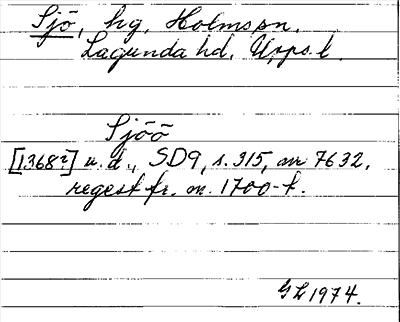 Sjö, hg, Holms sn.
Lagunda hd, Upps. l.
Sjöö
[1368?] u.d., SD9, s. 315, nr 7632,
regest fr. m. 1700-t.
GL 1974.